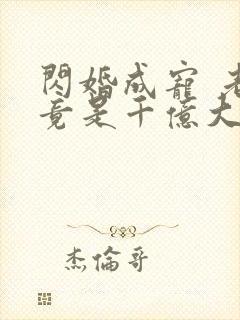 閃婚成寵
竟是千億大
杰倫哥